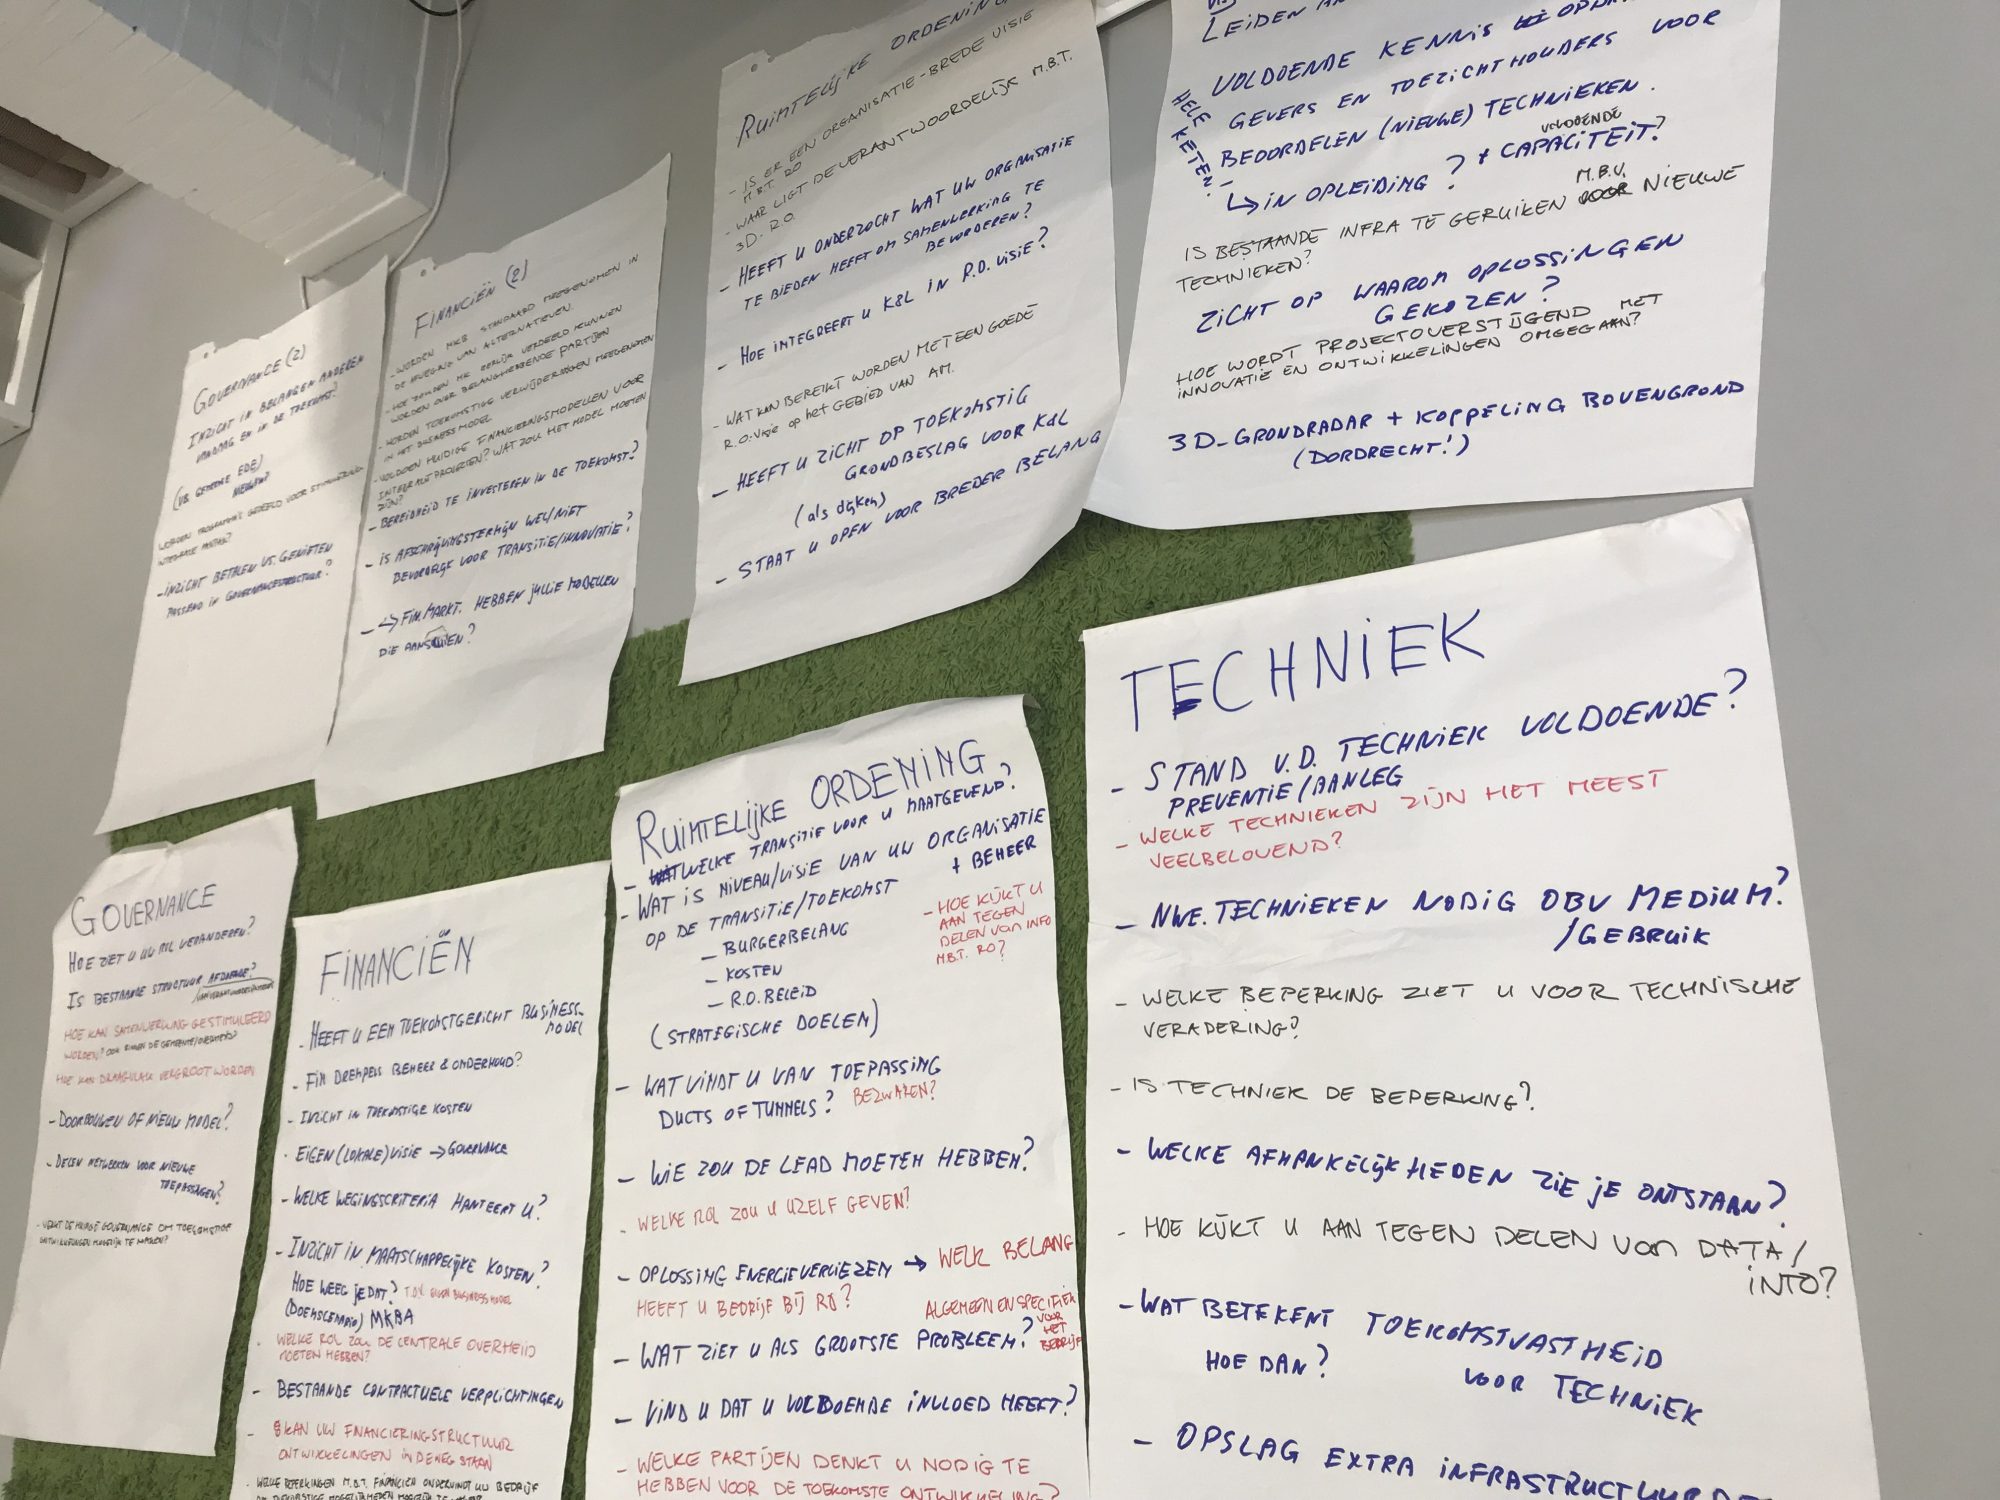 GOVERNANCE (2)
INZICHT IN BELANGEN ANDEREN
VANDAAG EN IN DE TOEKOMST?
(VB. GEMEENTE EDE)
WORDEN PROGRAMMA'S GEDEELD VOOR
INTEGRALE
- INZICHT BETALEN VS. GENIETEN
PASSEND IN GOVERNANCESTRUCTUUR?
FINANCIËN (2)
- WORDEN MKB STANDAARD MEEGENOMEN IN
DE AFWEGING VAN ALTERNATIEVEN.
- HOE ZOUDEN MK EERLIJK VERDEELD KUNNEN
WORDEN OVER BELANGHEBBENDE PARTIJEN
- WORDEN TOEKOMSTIGE VERWIJDERINGEN MEEGENOMEN
IN HET BUSINESS MODEL
- VOLDOEN HUIDIGE FINANCIERINGSMODELLEN VOOR
INTEGRALE PROJECTEN? WAT ZOU HET MODEL MOETEN
ZIJN?
- BEREIDHEID TE INVESTEREN IN DE TOEKOMST?
- IS AFSCHRIJVINGSTERMIJN WEL/NIET
BEVORDELIJK VOOR TRANSITIE/INNOVATIE?
- → FIN. MARKT. HEBBEN JULLIE MODELLEN
DIE
RUIMTELIJKE ORDENING
- IS ER EEN ORGANISATIE-BREDE VISIE
M.B.T. RO
- WAAR LIGT DE VERANTWOORDELIJK M.B.T.
3D. R.O.
- HEEFT U ONDERZOCHT WAT UW ORGANISATIE
TE BIEDEN HEEFT OM SAMENWERKING TE
BEVORDEREN?
- HOE INTEGREERT U K&L IN R.O. VISIE?
- WAT KAN BEREIKT WORDEN MET EEN GOEDE
R.O. Visie op het GEBIED VAN AM.
- HEEFT U ZICHT OP TOEKOMSTIG
GRONDBESLAG VOOR K&L
(als dijken)
- STAAT U OPEN VOOR BREDER BELANG
LEIDEN
VOLDOENDE KENNIS OPDR
GEVERS EN TOEZICHTHOUDERS VOOR
BEOORDELEN (NIEUWE) TECHNIEKEN.
HELE
KETEN?
↳ IN OPLEIDING? + VOLDOENDE CAPACITEIT?
IS BESTAANDE INFRA TE GERUIKEN M.B.V. NIEUWE
TECHNIEKEN?
ZICHT OP WAAROM OPLOSSINGEN
GEKOZEN?
HOE WORDT PROJECTOVERSTIJGEND MET
INNOVATIE EN ONTWIKKELINGEN OMGEGAAN?
3D-GRONDRADAR + KOPPELING BOVENGROND
(DORDRECHT!)
GOVERNANCE
HOE ZIET U UW ROL VERANDEREN?
IS BESTAANDE STRUCTUUR AFDOENDE?
HOE KAN SAMENWERKING GESTIMULEERD
WORDEN? OOK BINNEN DE GEMEENTE/OVERHEID?
HOE KAN DRAAGVLAK VERGROOT WORDEN
- DOORBOUWEN OF NIEUW MODEL?
- DELEN NETWERKEN VOOR NIEUWE
TOEPASSINGEN?
DE HUIDIGE GOVERNANCE OM
ONTWIKKELINGEN MOGELIJK TE MAKEN?
FINANCIËN
- HEEFT U EEN TOEKOMSTGERICHT BUSINESS-
MODEL
- FIN DREMPELS BEHEER & ONDERHOUD?
- INZICHT IN TOEKOMSTIGE KOSTEN
- EIGEN (LOKALE) VISIE → GOVERNANCE
- WELKE WEGINGSCRITERIA HANTEERT U?
- INZICHT IN MAATSCHAPPELIJKE KOSTEN?
HOE WEEG JE DAT? T.O.V. EIGEN BUSINESS MODEL
(DOEMSCENARIO) MKBA
- WELKE ROL ZOU DE CENTRALE OVERHEID
MOETEN HEBBEN?
- BESTAANDE CONTRACTUELE VERPLICHTINGEN
- KAN UW FINANCIERINGSTRUCTUUR
ONTWIKKELINGEN IN DE WEG STAAN
- WELKE BEPERKINGEN M.B.T. FINANCIEN ONDERVINDT UW BEDRIJF
RUIMTELIJKE ORDENING
- WELKE TRANSITIE VOOR U MAATGEVEND?
- WAT IS NIVEAU/VISIE VAN UW ORGANISATIE
OP DE TRANSITIE/TOEKOMST + BEHEER
- BURGERBELANG
- KOSTEN
- R.O. BELEID
(STRATEGISCHE DOELEN)
- HOE KIJKT U
AAN TEGEN
DELEN van INFO
M.B.T. RO?
- WAT VINDT U VAN TOEPASSING
DUCTS OF TUNNELS? BEZWAREN?
- WIE ZOU DE LEAD MOETEN HEBBEN?
- WELKE ROL ZOU U UZELF GEVEN?
- OPLOSSING ENERGIEVERLIEZEN → WELK BELANG
HEEFT U BEDRIJF BIJ RO?
ALGEMEEN EN SPECIFIEK
VOOR
HET
BEDRIJF
- WAT ZIET U ALS GROOTSTE PROBLEEM?
- VIND U DAT U VOLDOENDE INVLOED HEEFT?
- WELKE PARTIJEN DENKT U NODIG TE
HEBBEN VOOR DE TOEKOMSTE ONTWIKKELING?
TECHNIEK
- STAND V.D. TECHNIEK VOLDOENDE?
PREVENTIE/AANLEG
- WELKE TECHNIEKEN ZIJN HET MEEST
VEELBELOVEND?
- NWE. TECHNIEKEN NODIG OBV MEDIUM?
/GEBRUIK
- WELKE BEPERKING ZIET U VOOR TECHNISCHE
VERADERING?
- IS TECHNIEK DE BEPERKING?
- WELKE AFHANKELIJKHEDEN ZIE JE ONTSTAAN?
- HOE KIJKT U AAN TEGEN DELEN van DATA/
INFO?
- WAT BETEKENT TOEKOMSTVASTHEID
HOE DAN? VOOR TECHNIEK
- OPSLAG EXTRA